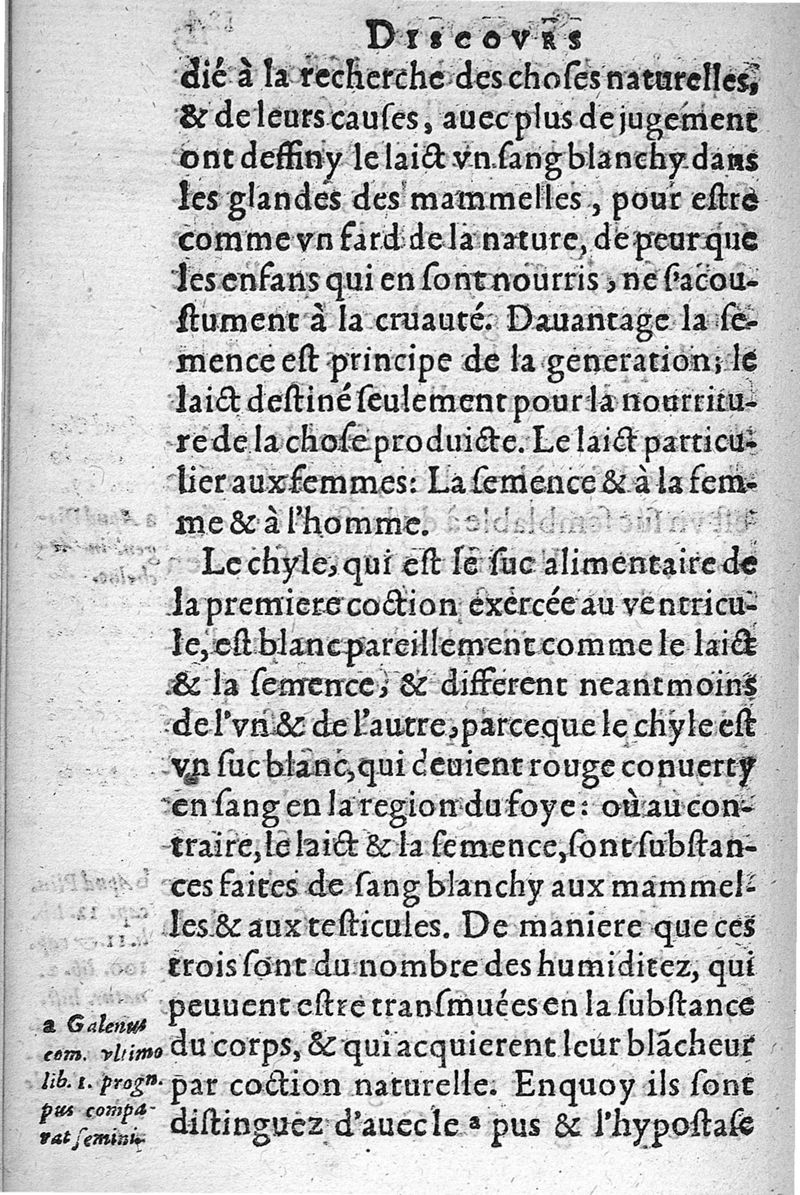 DISCOVRS
dié à la recherche des choſes naturelles,
& de leurs cauſes, auec plus de jugement
ont deffiny le laict vn ſang blanchy dans
les glandes des mammelles, pour eſtre
comme vn fard de la nature, de peur que
les enfans qui en ſont nourris, ne ſ'acou-
ſtument à la cruauté. Dauantage la ſe-
mence eſt principe de la generation; le
laict deſtiné ſeulement pour la nourritu-
re de la choſe produicte. Le laict particu-
lier aux femmes: La ſemence & à la fem-
me & à l'homme.
Le chyle, qui eſt le ſuc alimentaire de
la premiere coction exercée au ventricu-
le, eſt blanc pareillement comme le laict
& la ſemence, & different neantmoins
de l'vn & de l'autre, parce que le chyle eſt
vn ſuc blanc, qui deuient rouge conuerty
en ſang en la region du foye: où au con-
traire, le laict & la ſemence, ſont ſubſtan-
ces faites de ſang blanchy aux mammel-
les & aux teſticules. De maniere que ces
trois ſont du nombre des humiditez, qui
peuuent eſtre tranſmuées en la ſubſtance
du corps, & qui acquierent leur blācheur
par coction naturelle. En quoy ils ſont
diſtinguez d'auec le a pus & l'hypoſtaſe
a Galenus
com. vltimo
lib. 1. progn.
pus compa-
rat ſemini.